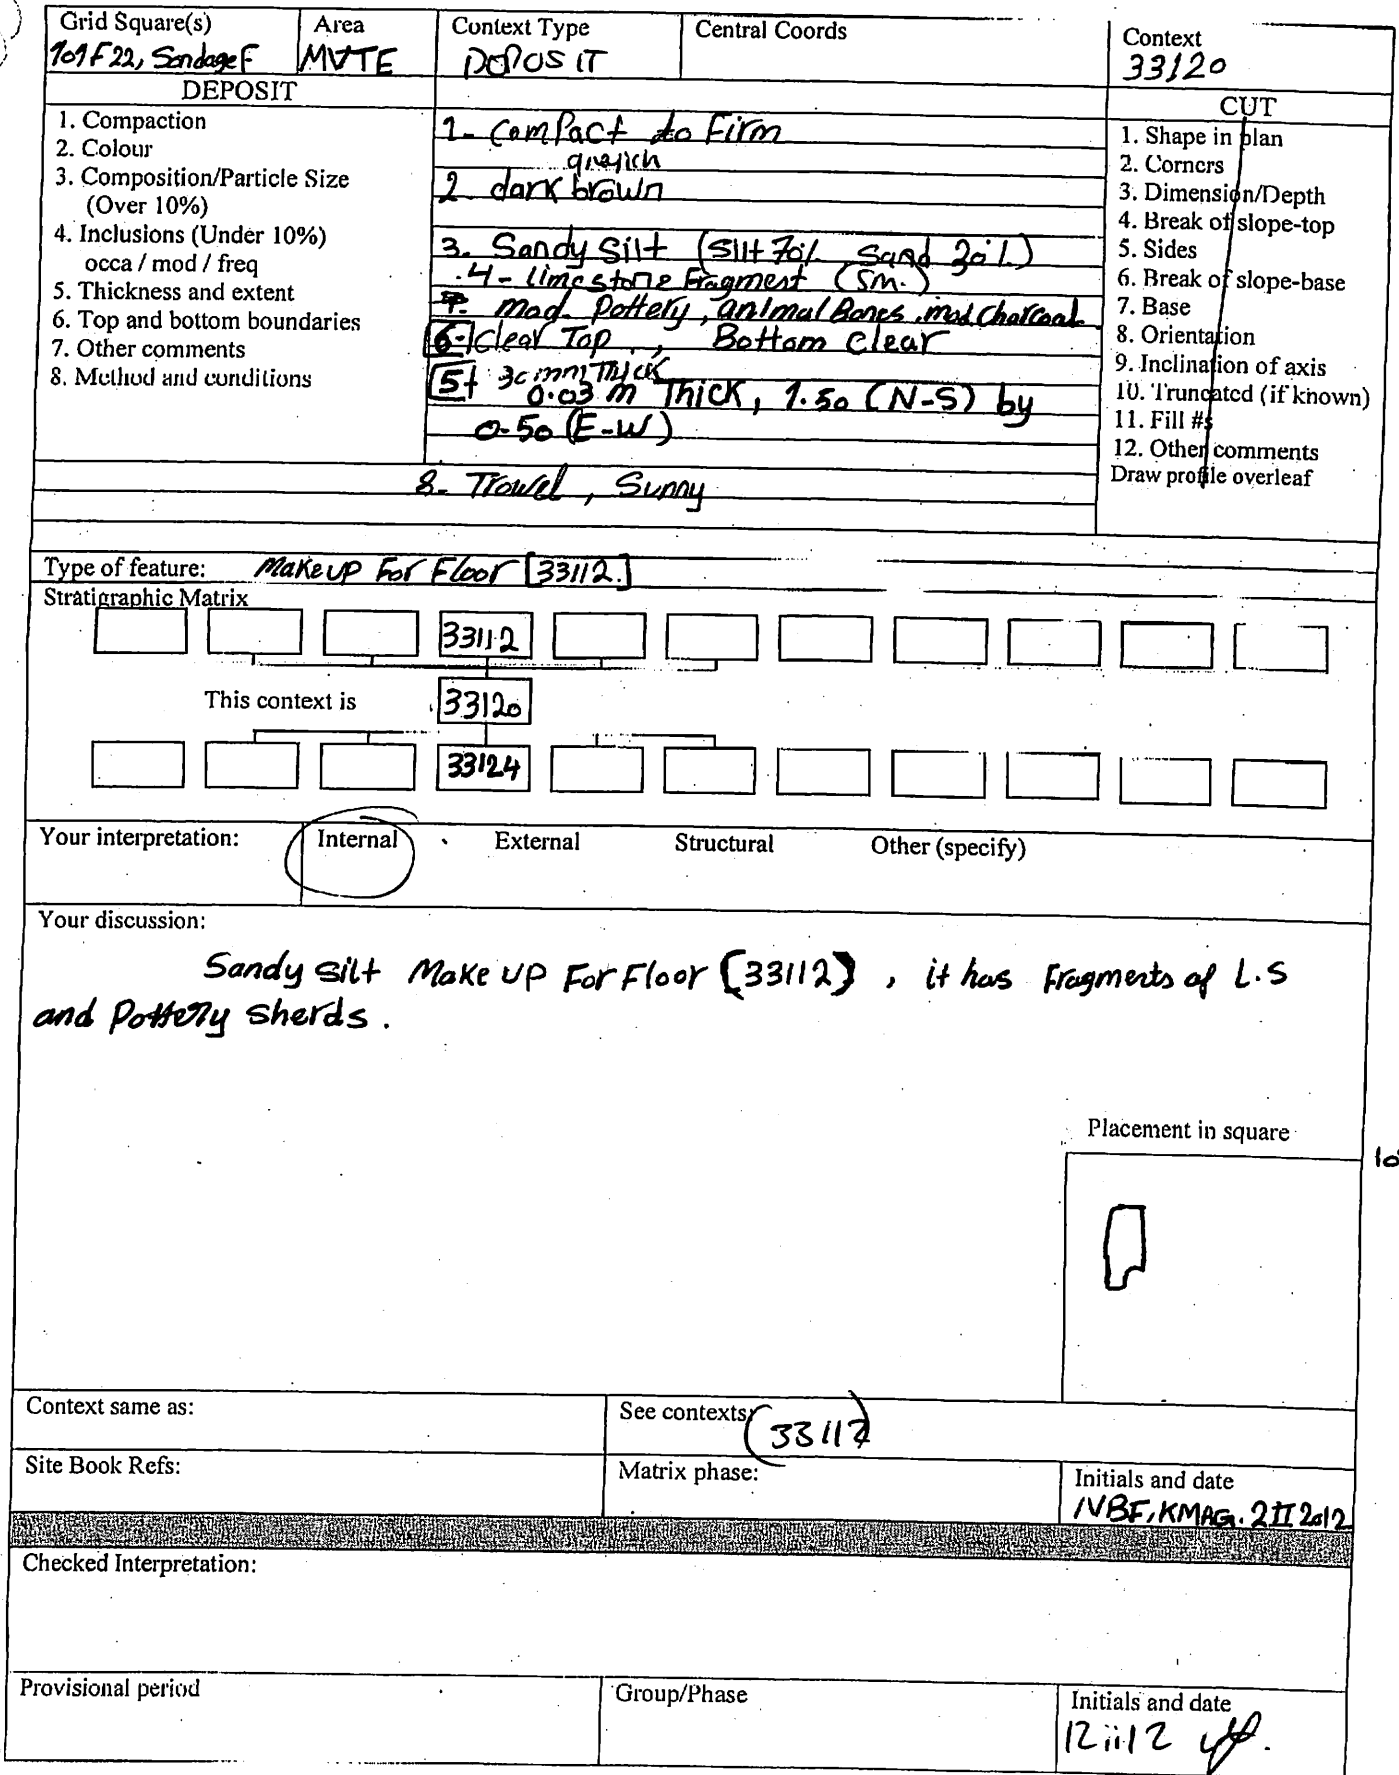 Grid Square(s) Area Context Type Central Coords Context
101F22, Sondage F MVTE DOPOSIT 33120
DEPOSIT CUT
1. Compaction
2. Colour
3. Composition/Particle Size
(Over 10%)
4. Inclusions (Under 10%)
occa / mod / freq
5. Thickness and extent
6. Top and bottom boundaries
7. Other comments
8. Method and conditions
1- Compact to Firm
greyich
2 dark brown
3. Sandy Silt (Silt 70%, Sand 30%)
4- limestone Fragment (Sm.)
7. mod. Pottery, animal Bones, mod charcoal.
6- Clear Top, Bottom Clear
5- 3cm Thick
0.03 m Thick, 1.50 (N-S) by
0.50 (E-W)
8- Trowel, Sunny
1. Shape in plan
2. Corners
3. Dimension/Depth
4. Break of slope-top
5. Sides
6. Break of slope-base
7. Base
8. Orientation
9. Inclination of axis
10. Truncated (if known)
11. Fill #s
12. Other comments
Draw profile overleaf
Type of feature: Makeup For Floor [33112.]
Stratigraphic Matrix
33112
This context is 33120
33124
Your interpretation: Internal External Structural Other (specify)
Your discussion:
Sandy Silt Make up For Floor [33112], it has Fragments of L.S
and Pottery Sherds.
Placement in square
10
Context same as: See contexts: (33112)
Site Book Refs: Matrix phase: Initials and date
IVBF, KMAG. 2 II 2012
Checked Interpretation:
Provisional period Group/Phase Initials and date
12 ii 12